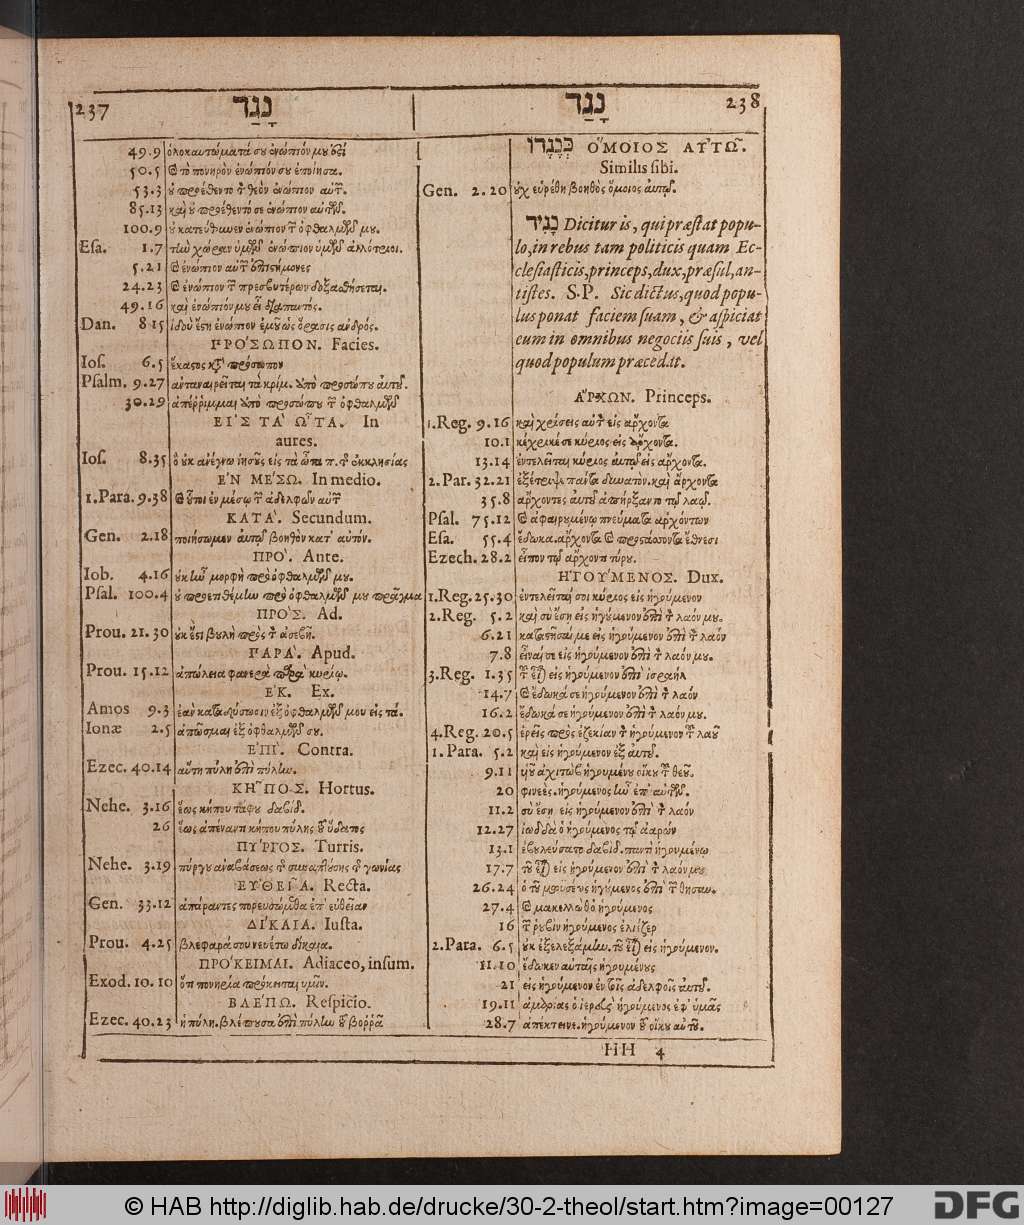 237 נָגַד
49.9 ὁλοκαυτώματά σου ἐνώπιόν μου
50.5 τὸ πονηρὸν ἐνώπιόν σου ἐποίησα.
53.3 οὐ προέθεντο τ θεὸν ἐνώπιον αὐτ.
85.13 καὶ οὐ προέθεντό σε ἐνώπιον αὐτῶν.
100.9 οὐ κατεύθυνεν ἐνώπιον τ ὀφθαλμῶν μου.
Esa. 1.7 τὴν χώραν ὑμῶν ἐνώπιον ὑμῶν ἀλλότριοι.
5.21 ἐνώπιον αὐτ ἐπιστήμονες
24.23 ἐνώπιον τ πρεσβυτέρων δοξασθήσεται.
49.16 καὶ ἐνώπιόν μου εἶ διαπαντός.
Dan. 8 15 ἰδοὺ ἔστη ἐνώπιον ἐμοῦ ὡς ὅρασις ἀνδρός.
ΠΡΟΣΩΠΟΝ. Facies.
Ios. 6.5 ἕκαστος κτ πρόσωπον
Psalm. 9.27 ἀνταναιρεῖται τὰ κρίμ. ὑπὸ προσώπου αὐτοῦ.
30.29 ἀπέῤῥιμμαι ὑπὸ προσώπου τ ὀφθαλμῶν
ΕΙΣ ΤΑ ΩΤΑ. In
aures.
Ios. 8.35 ὃ οὐκ ἀνέγνω ἰησοῦς εἰς τὰ ὦτα π. τ ἐκκλησίας
ΕΝ ΜΕΣΩ. In medio.
1.Para. 9.38 οὗτοι ἐν μέσῳ τ ἀδελφῶν αὐτ
ΚΑΤΑ. Secundum.
Gen. 2.18 ποιήσωμεν αὐτῷ βοηθὸν κατ' αὐτόν.
ΠΡΟ. Ante.
Iob. 4.16 οὐκ ἦν μορφὴ πρὸ ὀφθαλμῶν μου.
Psal. 100.4 οὐ προεθέμην πρὸ ὀφθαλμῶν μου πρᾶγμα
ΠΡΟΣ. Ad.
Prou. 21.30 οὐκ ἔστι βουλὴ πρὸς τ ἀσεβῆ.
ΠΑΡΑ. Apud.
Prou. 15.12 ἀπώλεια φανερὰ παρὰ κυρίῳ.
ΕΚ. Ex.
Amos 9.3 ἐὰν καταδύσωσιν ἐξ ὀφθαλμῶν μου εἰς τά.
Ionæ 2.5 ἀπῶσμαι ἐξ ὀφθαλμῶν σου.
ΕΠΙ. Contra.
Ezec. 40.14 αὕτη πύλη ἐπὶ πύλην.
ΚΗΠΟΣ. Hortus.
Nehe. 3.16 ἕως κήπου ταφου δαβίδ.
26 ἕως ἀπέναντι κήπου πύλης τοῦ ὕδατος
ΠΥΡΓΟΣ. Turris.
Nehe. 3.19 πύργου ἀναβάσεως τ συναπτούσης τ γωνίας
ΕΥΘΕΙΑ. Recta.
Gen. 33.12 ἀπάραντες πορευσώμεθα ἐπ' εὐθεῖαν
ΔΙΚΑΙΑ. Iusta.
Prou. 4.25 βλέφαρά σου νευέτω δίκαια.
ΠΡΟΚΕΙΜΑΙ. Adiaceo, insum.
Exod. 10.10 ὅτι πονηρία πρόκειται ὑμῖν.
ΒΛΕΠΩ. Respicio.
Ezec. 40.23 ἡ πύλη. βλέπουσα ἐπὶ πύλην τοῦ βοῤῥᾶ
נָגַד 238
כְּנֶגְדּוֹ ΟΜΟΙΟΣ ΑΥΤΩ.
Similis sibi.
Gen. 2.20 οὐχ εὑρέθη βοηθὸς ὅμοιος αὐτῷ.
נָגִיד Dicitur is, qui præstat popu-
lo, in rebus tam politicis quam Ec-
clesiasticis, princeps, dux, præsul, an-
tistes. S.P. Sic dictus, quod popu-
lus ponat faciem suam, & aspiciat
eum in omnibus negociis suis, vel
quod populum præcedit.
ΑΡΧΩΝ. Princeps.
1.Reg. 9.16 καὶ χρίσεις αὐτ εἰς ἄρχοντα
10.1 κέχρικέ σε κύριος εἰς ἄρχοντα.
13.14 ἐντελεῖται κύριος αὐτῷ εἰς ἄρχοντα.
2.Par. 32.21 ἐξέτριψε πάντα δυνατὸν. καὶ ἄρχοντα
35.8 ἄρχοντες αὐτοῦ ἀπήρξαντο τῷ λαῷ.
Psal. 75.12 ἀφαιρουμένῳ πνεύματα ἀρχόντων
Esa. 55.4 ἔδωκα. ἄρχοντα προστάσσοντα ἔθνεσι
Ezech. 28.2 εἶπον τῷ ἄρχοντι τύρου.
ΗΓΟΥΜΕΝΟΣ. Dux.
1.Reg. 25.30 ἐντελεῖταί σοι κύριος εἰς ἡγούμενον
2.Reg. 5.2 καὶ σὺ ἔσῃ εἰς ἡγούμενον ἐπὶ τ λαόν μου.
6.21 καταστῆσαί με εἰς ἡγούμενον ἐπὶ τ λαόν
7.8 εἶναί σε εἰς ἡγούμενον ἐπὶ τ λαόν μου.
3.Reg. 1.35 τ εἶναι εἰς ἡγούμενον ἐπὶ ἰσραήλ
14.7 ἔδωκά σε ἡγούμενον ἐπὶ τ λαόν
16.2 ἔδωκά σε ἡγούμενον ἐπὶ τ λαόν μου.
4.Reg. 20.5 ἐρεῖς πρὸς ἐζεκίαν τ ἡγούμενον τ λαοῦ
1.Para. 5.2 καὶ εἰς ἡγούμενον ἐξ αὐτοῦ.
9.11 υἱοῦ ἀχιτὼβ ἡγουμένου οἴκου τ θεοῦ.
20 φινεές. ἡγούμενος ἦν ἐπ' αὐτῶν.
11.2 σὺ ἔσῃ εἰς ἡγούμενον ἐπὶ τ λαόν
12.27 ἰωδδὰ ὁ ἡγούμενος τῷ ἀαρών
13.1 ἐβουλεύσατο δαβίδ. παντὶ ἡγουμένῳ
17.7 τοῦ εἶναι εἰς ἡγούμενον ἐπὶ τ λαόν μου
26.24 ὁ τοῦ μωυσέως ἡγούμενος ἐπὶ τ θησαυ.
27.4 μακελλὼθ ὁ ἡγούμενος
16 τ ῥουβὶν ἡγούμενος ἐλιέζερ
2.Para. 6.5 οὐκ ἐξελεξάμην. τοῦ εἶναι εἰς ἡγούμενον.
11.10 ἔδωκεν αὐταῖς ἡγουμένους
21 εἰς ἡγούμενον ἐν τοῖς ἀδελφοῖς αὐτοῦ.
19.11 ἀμαρίας ὁ ἱερεὺς ἡγούμενος ἐφ' ὑμᾶς
28.7 ἀπέκτεινε. ἡγούμενον τοῦ οἴκου αὐτοῦ.
HH 4
© HAB http://diglib.hab.de/drucke/30-2-theol/start.htm?image=00127
DFG